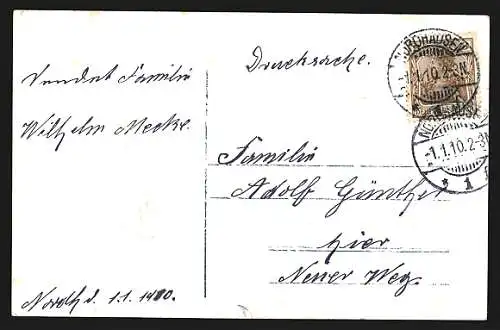 Drucksache.
Sendet Familie
Wilhelm Mecke.
Familie
Adolf Günther
hier
Neuer Weg.
Nordh. d. 1.1.1910.
NORDHAUSEN
1.1.10.2-3N
NORDHAUSEN
1.1.10.2-3N
* 1